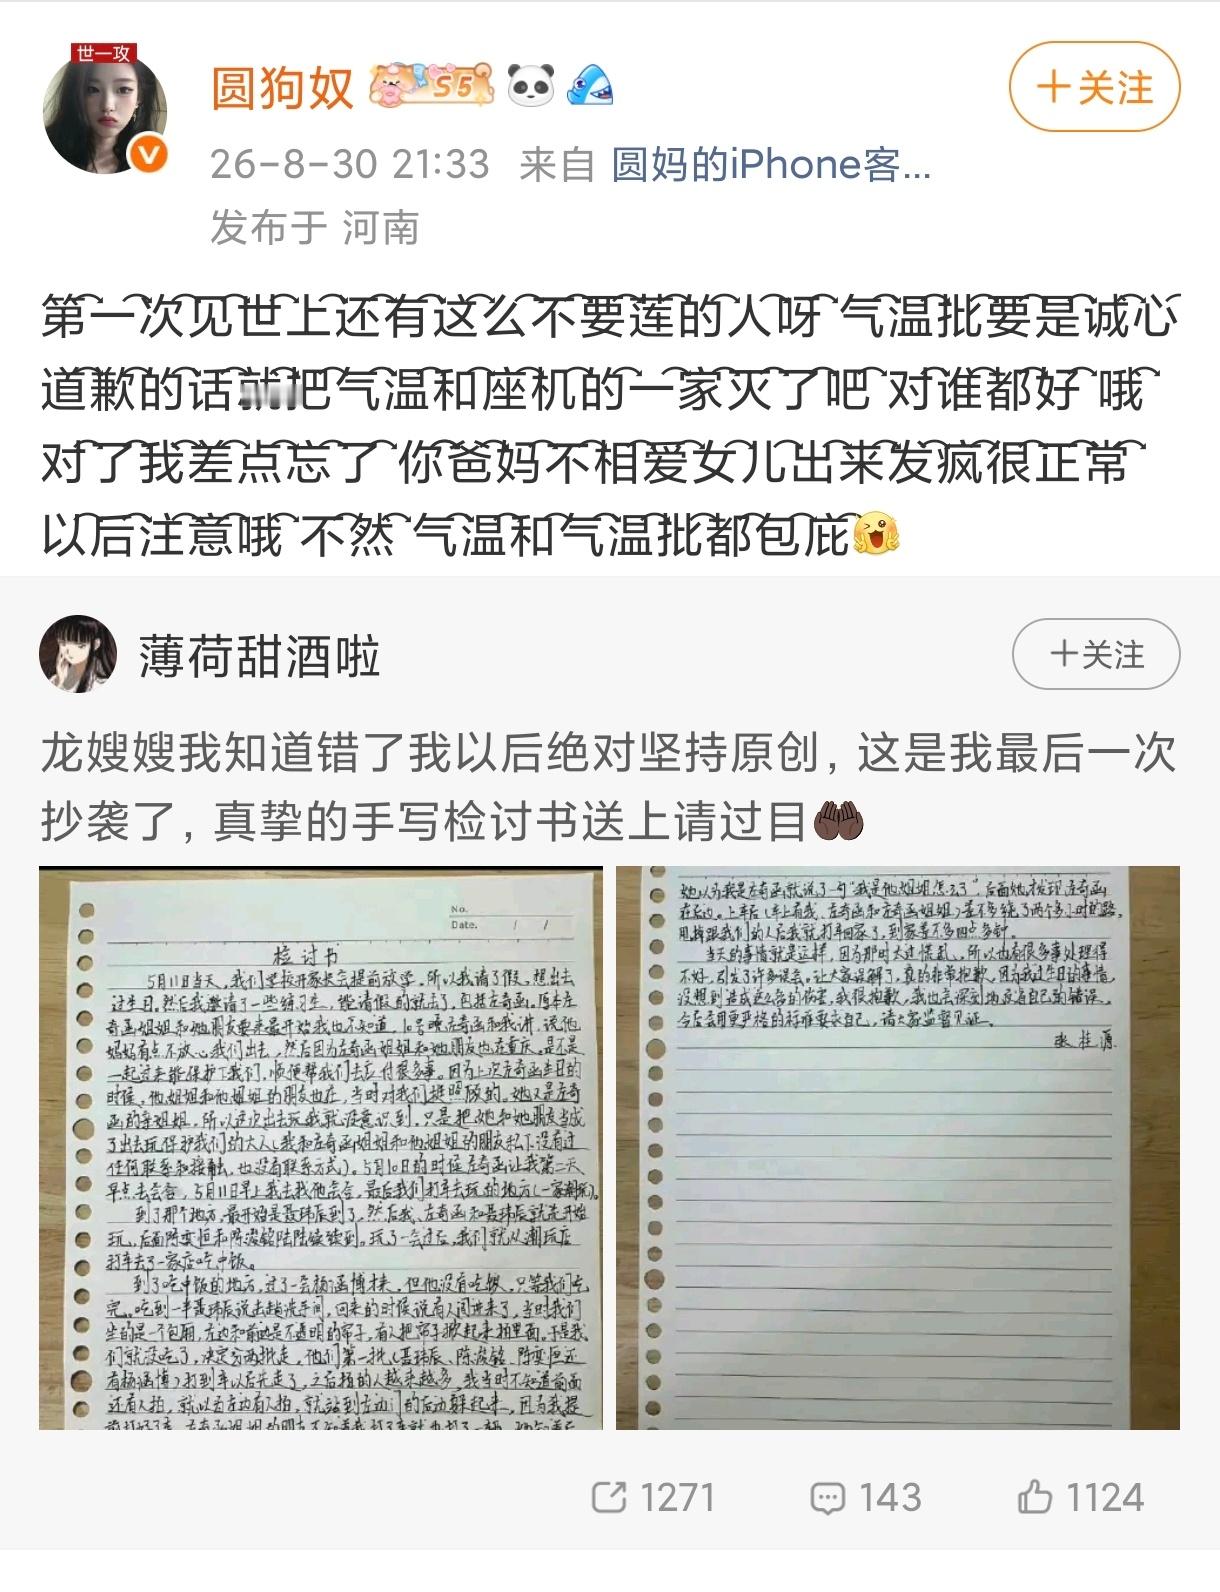 世一攻
圆狗奴
S5
+关注
26-8-30 21:33 来自 圆妈的iPhone客...
发布于 河南
第一次见世上还有这么不要莲的人呀 气温批要是诚心
道歉的话就把气温和座机的一家灭了吧 对谁都好 哦
对了我差点忘了 你爸妈不相爱女儿出来发疯很正常
以后注意哦 不然 气温和气温批都包庇
薄荷甜酒啦
+关注
龙嫂嫂我知道错了我以后绝对坚持原创，这是我最后一次
抄袭了，真挚的手写检讨书送上请过目
No.
Date. / /
检讨书
5月11日当天，我们学校开家长会提前放学，所以我请了假，想出去
过生日。然后我邀请了一些练习生，能请假的就去了，包括左奇函，原本左
奇函姐姐和她朋友要来最开始我也不知道，10号晚左奇函和我讲，说他
妈妈有点不放心我们出去，然后因为左奇函姐姐和她朋友也在重庆，是不是
一起过来能保护下我们，顺便帮我们去应付很多事。因为上次左奇函生日的
时候，他姐姐和他姐姐的朋友也在，当时对我们挺照顾的。她又是左奇
函的亲姐姐，所以这次出去玩我就没意识到，只是把她和她朋友当成
了出去玩保护我们的大人（我和左奇函姐姐和他姐姐的朋友私下没有过
任何联系和接触，也没有联系方式）。5月10日的时候左奇函让我第二天
早点去会合，5月11日早上我去找他会合，最后我们打车去玩的地方（一家潮玩）。
到了那个地方，最开始是聂玮辰到了，然后我、左奇函和聂玮辰就先开始
玩，后面陈奕恒和陈浚铭陆陆续续到。玩了一会过后，我们就从潮玩店
打车去了一家店吃中饭。
到了吃中饭的地方，过了一会杨涵博才来，但他没有吃饭，只等我们吃
完。吃到一半聂玮辰说去趟洗手间，回来的时候说有人闯进来了，当时我们
坐的是一个包厢，左边和前边是不透明的帘子，有人把帘子掀起来拍里面。于是我
们就没吃了，决定分两批走，他们第一批（聂玮辰、陈浚铭、陈奕恒还
有杨涵博）打到车以后先走了，之后拍的人越来越多，我当时不知道前面
还有人拍，就以为左边有人拍，就站到左边门的后边躲起来，因为我提
她以为我是左奇函就说了一句“我是他姐姐怎么了”，后面她发现左奇函
在后边。上车后（车上有我、左奇函和左奇函姐姐）差不多绕了两个多小时的路，
甩掉跟我们的人后我就打车回家了，到家差不多四点多钟。
当天的事情就是这样，因为那时太过慌乱，所以也有很多事处理得
不好，引发了许多误会。让大家误解了，真的非常抱歉，因为我过生日的事情，
没想到造成这么多的伤害，我很抱歉，我也会深刻地反省自己的错误。
今后会用更严格的标准要求自己，请大家监督见证。
张桂源
1271
143
1124